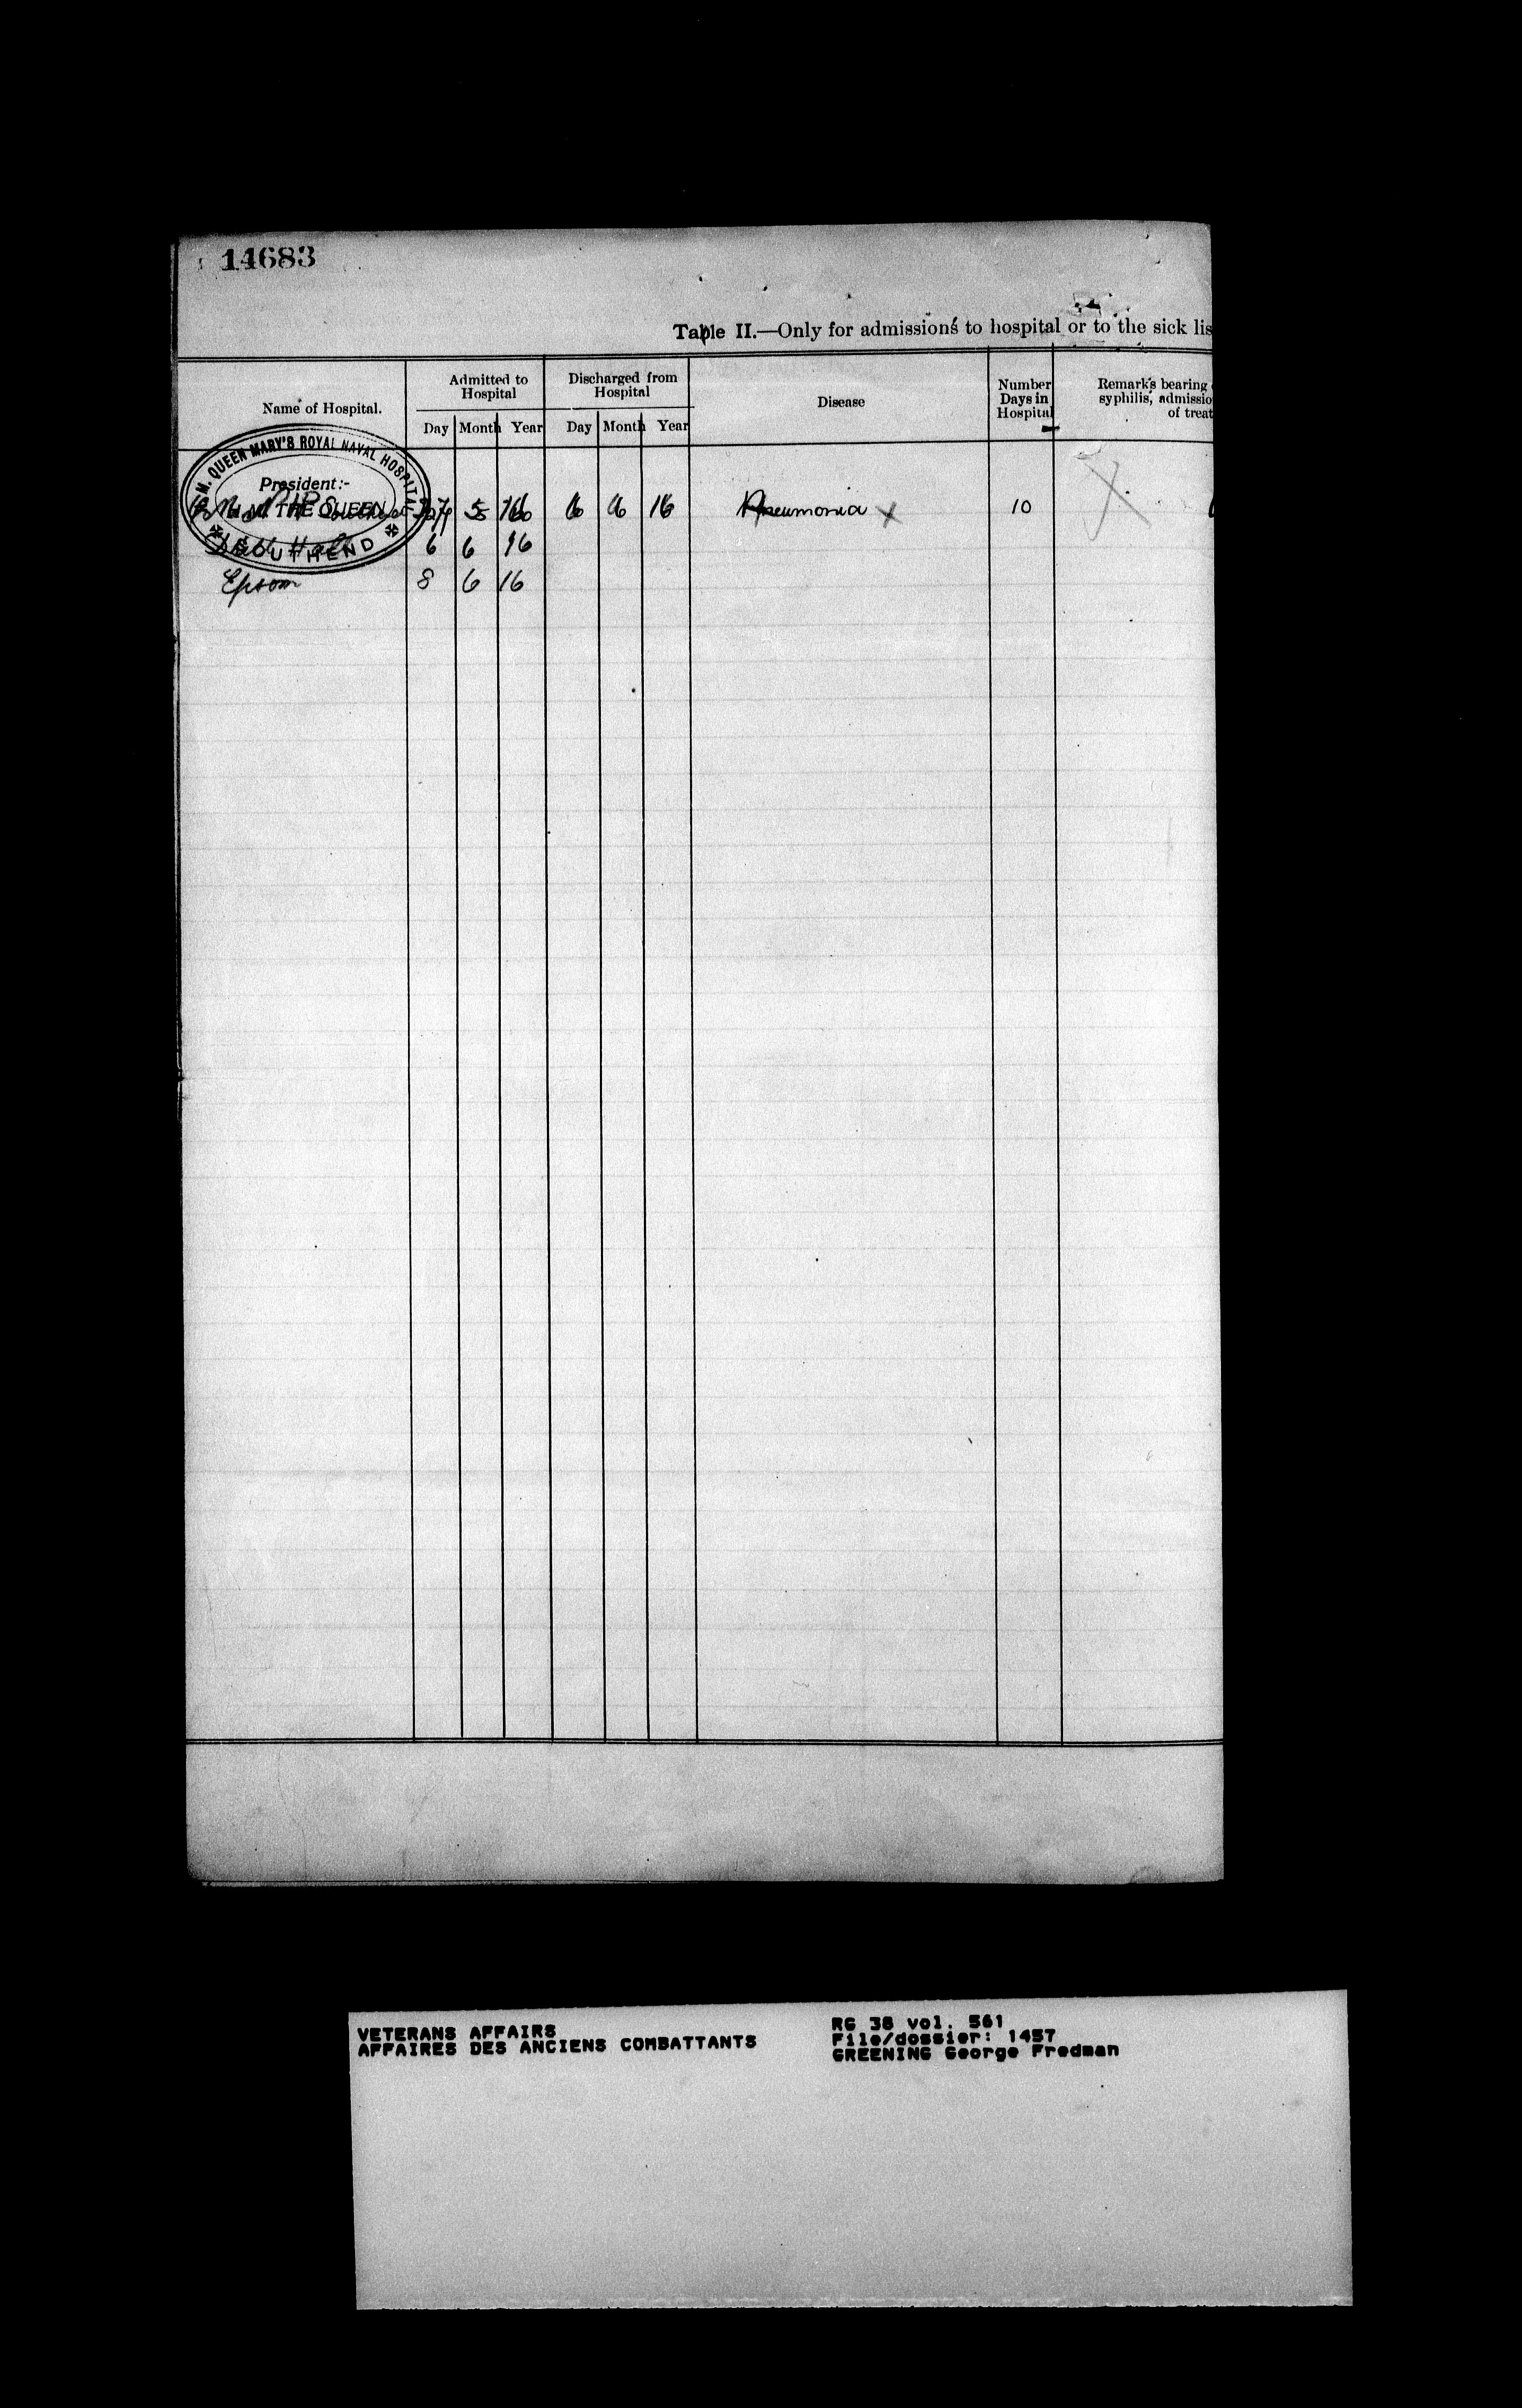 14683
Table II.—Only for admissions to hospital or to the sick lis
Name of Hospital.
Admitted to Hospital
Discharged from Hospital
Disease
Number Days in Hospital
Remarks bearing
syphilis, admissio
of treat
Day Month Year Day Month Year
M. QUEEN MARY'S ROYAL NAVAL HOSPITAL
President:-
H.M. THE QUEEN
SOUTHEND
27 5 16 6 6 16 Pneumonia x 10
6 6 16
Epsom 8 6 16
VETERANS AFFAIRS
AFFAIRES DES ANCIENS COMBATTANTS
RG 38 vol. 561
File/dossier: 1457
GREENING George Fredman